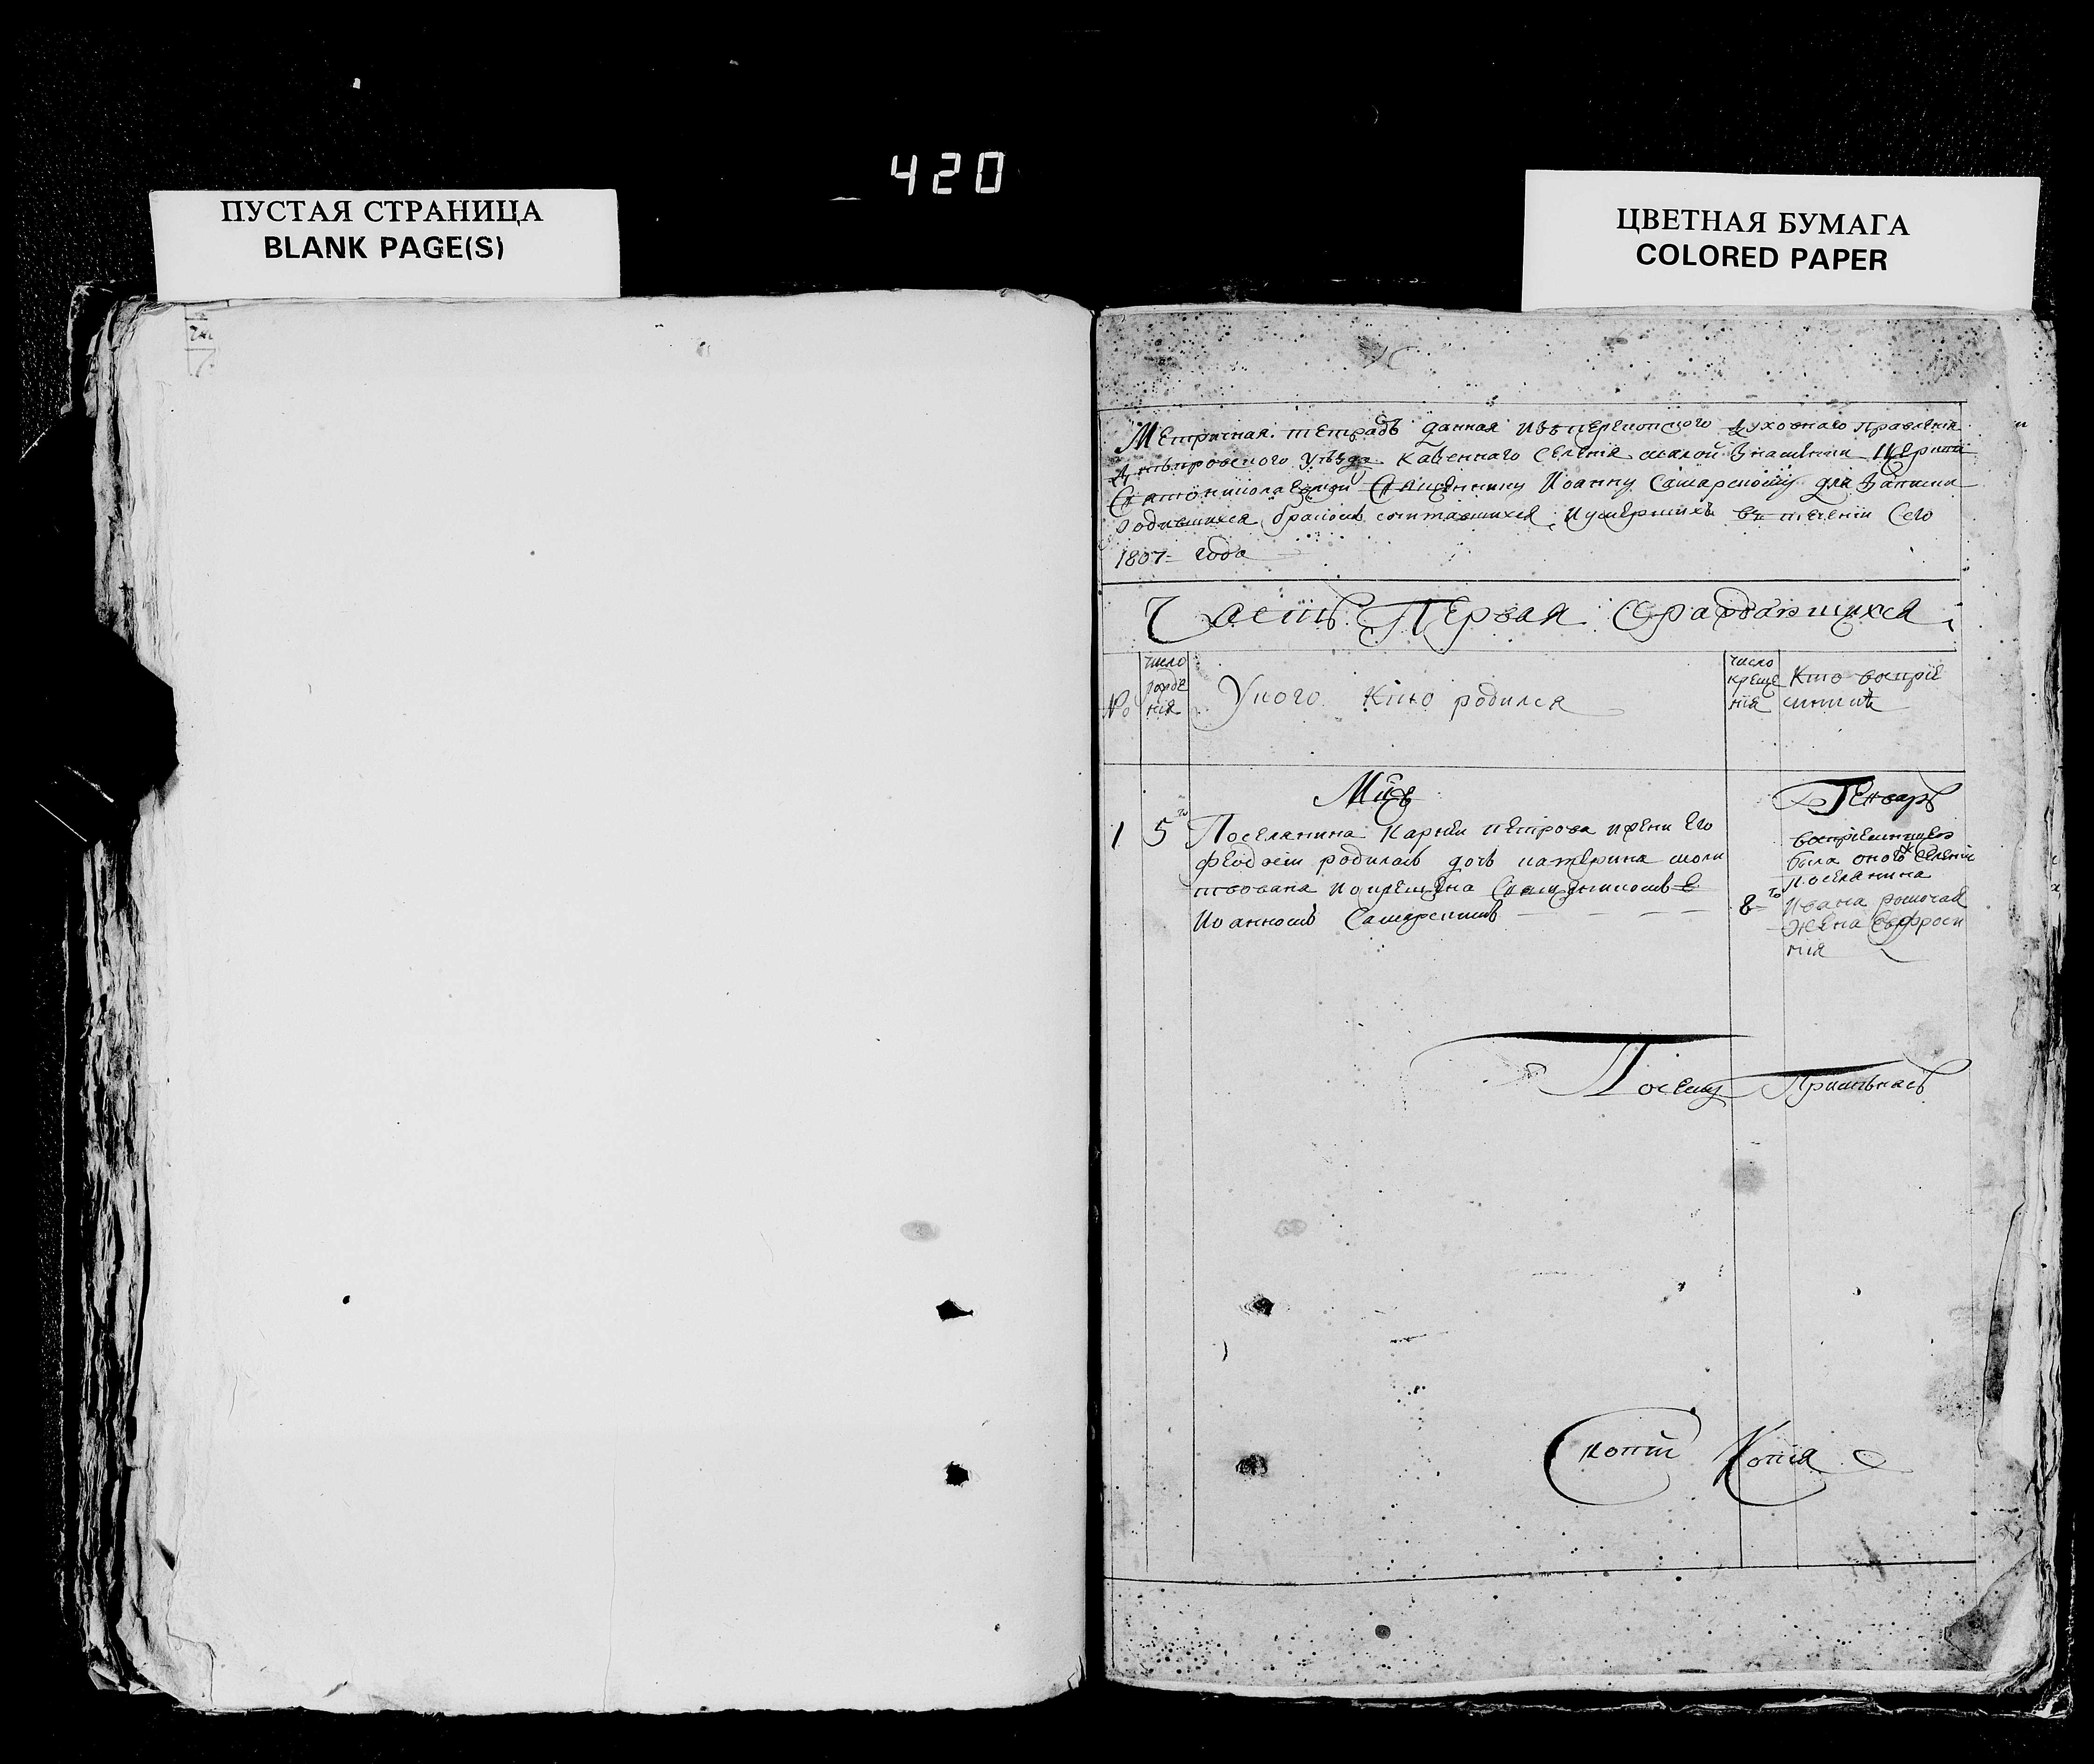 420
ПУСТАЯ СТРАНИЦА
BLANK PAGE(S)
ЦВЕТНАЯ БУМАГА
COLORED PAPER
Метричная тетрадь данная изъ перекопского духовнаго правления
Днѣпровского уѣзда казеннаго селения малой Знаменки церкви
Святониколаевской Священнику Иоанну Самарскому для записи
родившихся, бракомъ сочтавшихся, и умершихъ въ течении сего
1807 года
Часть Первая О раждающихся
№
число
рожде
нія
У кого Кто родился
число
креще
нія
Кто воспріе
мники
Мцъ
Генварь
1
5го
Поселянина Карнея петрова и жены его
феодосіи родилась дочь катерина моли
твована и окрещена Священникомъ
Иоанномъ Самарскимъ
8го
воспріемницею
была оного селенія
поселянина
Ивана
жена Евфроси
нія
По сему Примѣчаю
Копіи Копія